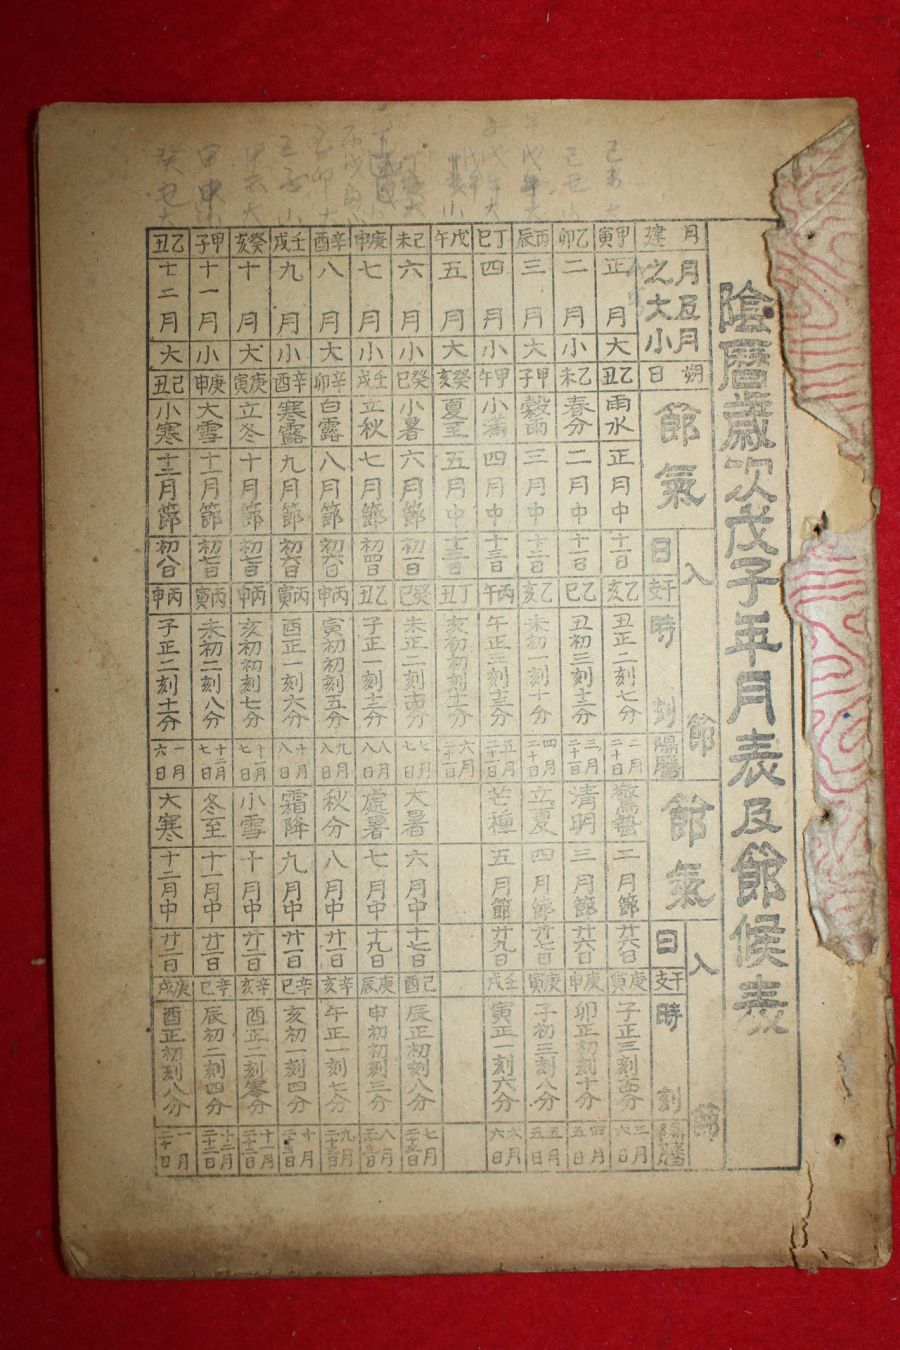 陰曆歲次戊子年月表及節候表
月建
月及月之大小
朔日
節氣
入節
日
干支
時刻
陽曆
節氣
入節
日
干支
時刻
陽曆
甲寅 正月 大 乙丑 雨水 正月中 十一日 乙亥 丑正二刻七分 二月二十日 驚蟄 二月節 廿六日 庚寅 子正三刻十四分 三月六日
乙卯 二月 小 乙未 春分 二月中 十一日 乙巳 丑初三刻十三分 三月二十一日 清明 三月節 廿六日 庚申 卯正初刻十分 四月五日
丙辰 三月 大 甲子 穀雨 三月中 十二日 乙亥 未初一刻十分 四月二十日 立夏 四月節 廿七日 庚寅 子初二刻八分 五月五日
丁巳 四月 小 甲午 小滿 四月中 十三日 丙午 午正三刻十三分 五月二十一日 芒種 五月節 廿九日 壬戌 寅正一刻六分 六月六日
戊午 五月 大 癸亥 夏至 五月中 十五日 丁丑 亥初初刻十一分 六月二十一日
己未 六月 小 癸巳 小暑 六月節 初一日 癸巳 未正二刻十四分 七月七日 大暑 六月中 十七日 己酉 辰正初刻八分 七月二十三日
庚申 七月 小 壬戌 立秋 七月節 初四日 乙丑 子正一刻十二分 八月八日 處暑 七月中 十九日 庚辰 申初初刻三分 八月二十三日
辛酉 八月 大 辛卯 白露 八月節 初六日 丙申 寅初初刻五分 九月八日 秋分 八月中 廿一日 辛亥 午正一刻七分 九月二十三日
壬戌 九月 小 辛酉 寒露 九月節 初六日 丙寅 酉正一刻六分 十月八日 霜降 九月中 廿一日 辛巳 亥初一刻四分 十月二十三日
癸亥 十月 大 庚寅 立冬 十月節 初七日 丙申 亥初初刻七分 十一月七日 小雪 十月中 廿二日 辛亥 酉正二刻零分 十一月二十二日
甲子 十一月 小 庚申 大雪 十一月節 初七日 丙寅 未初二刻八分 十二月七日 冬至 十一月中 廿二日 辛巳 辰初二刻四分 十二月二十二日
乙丑 十二月 大 己丑 小寒 十二月節 初八日 丙申 子正二刻十一分 一月六日 大寒 十二月中 廿二日 庚戌 酉正初刻八分 一月二十日